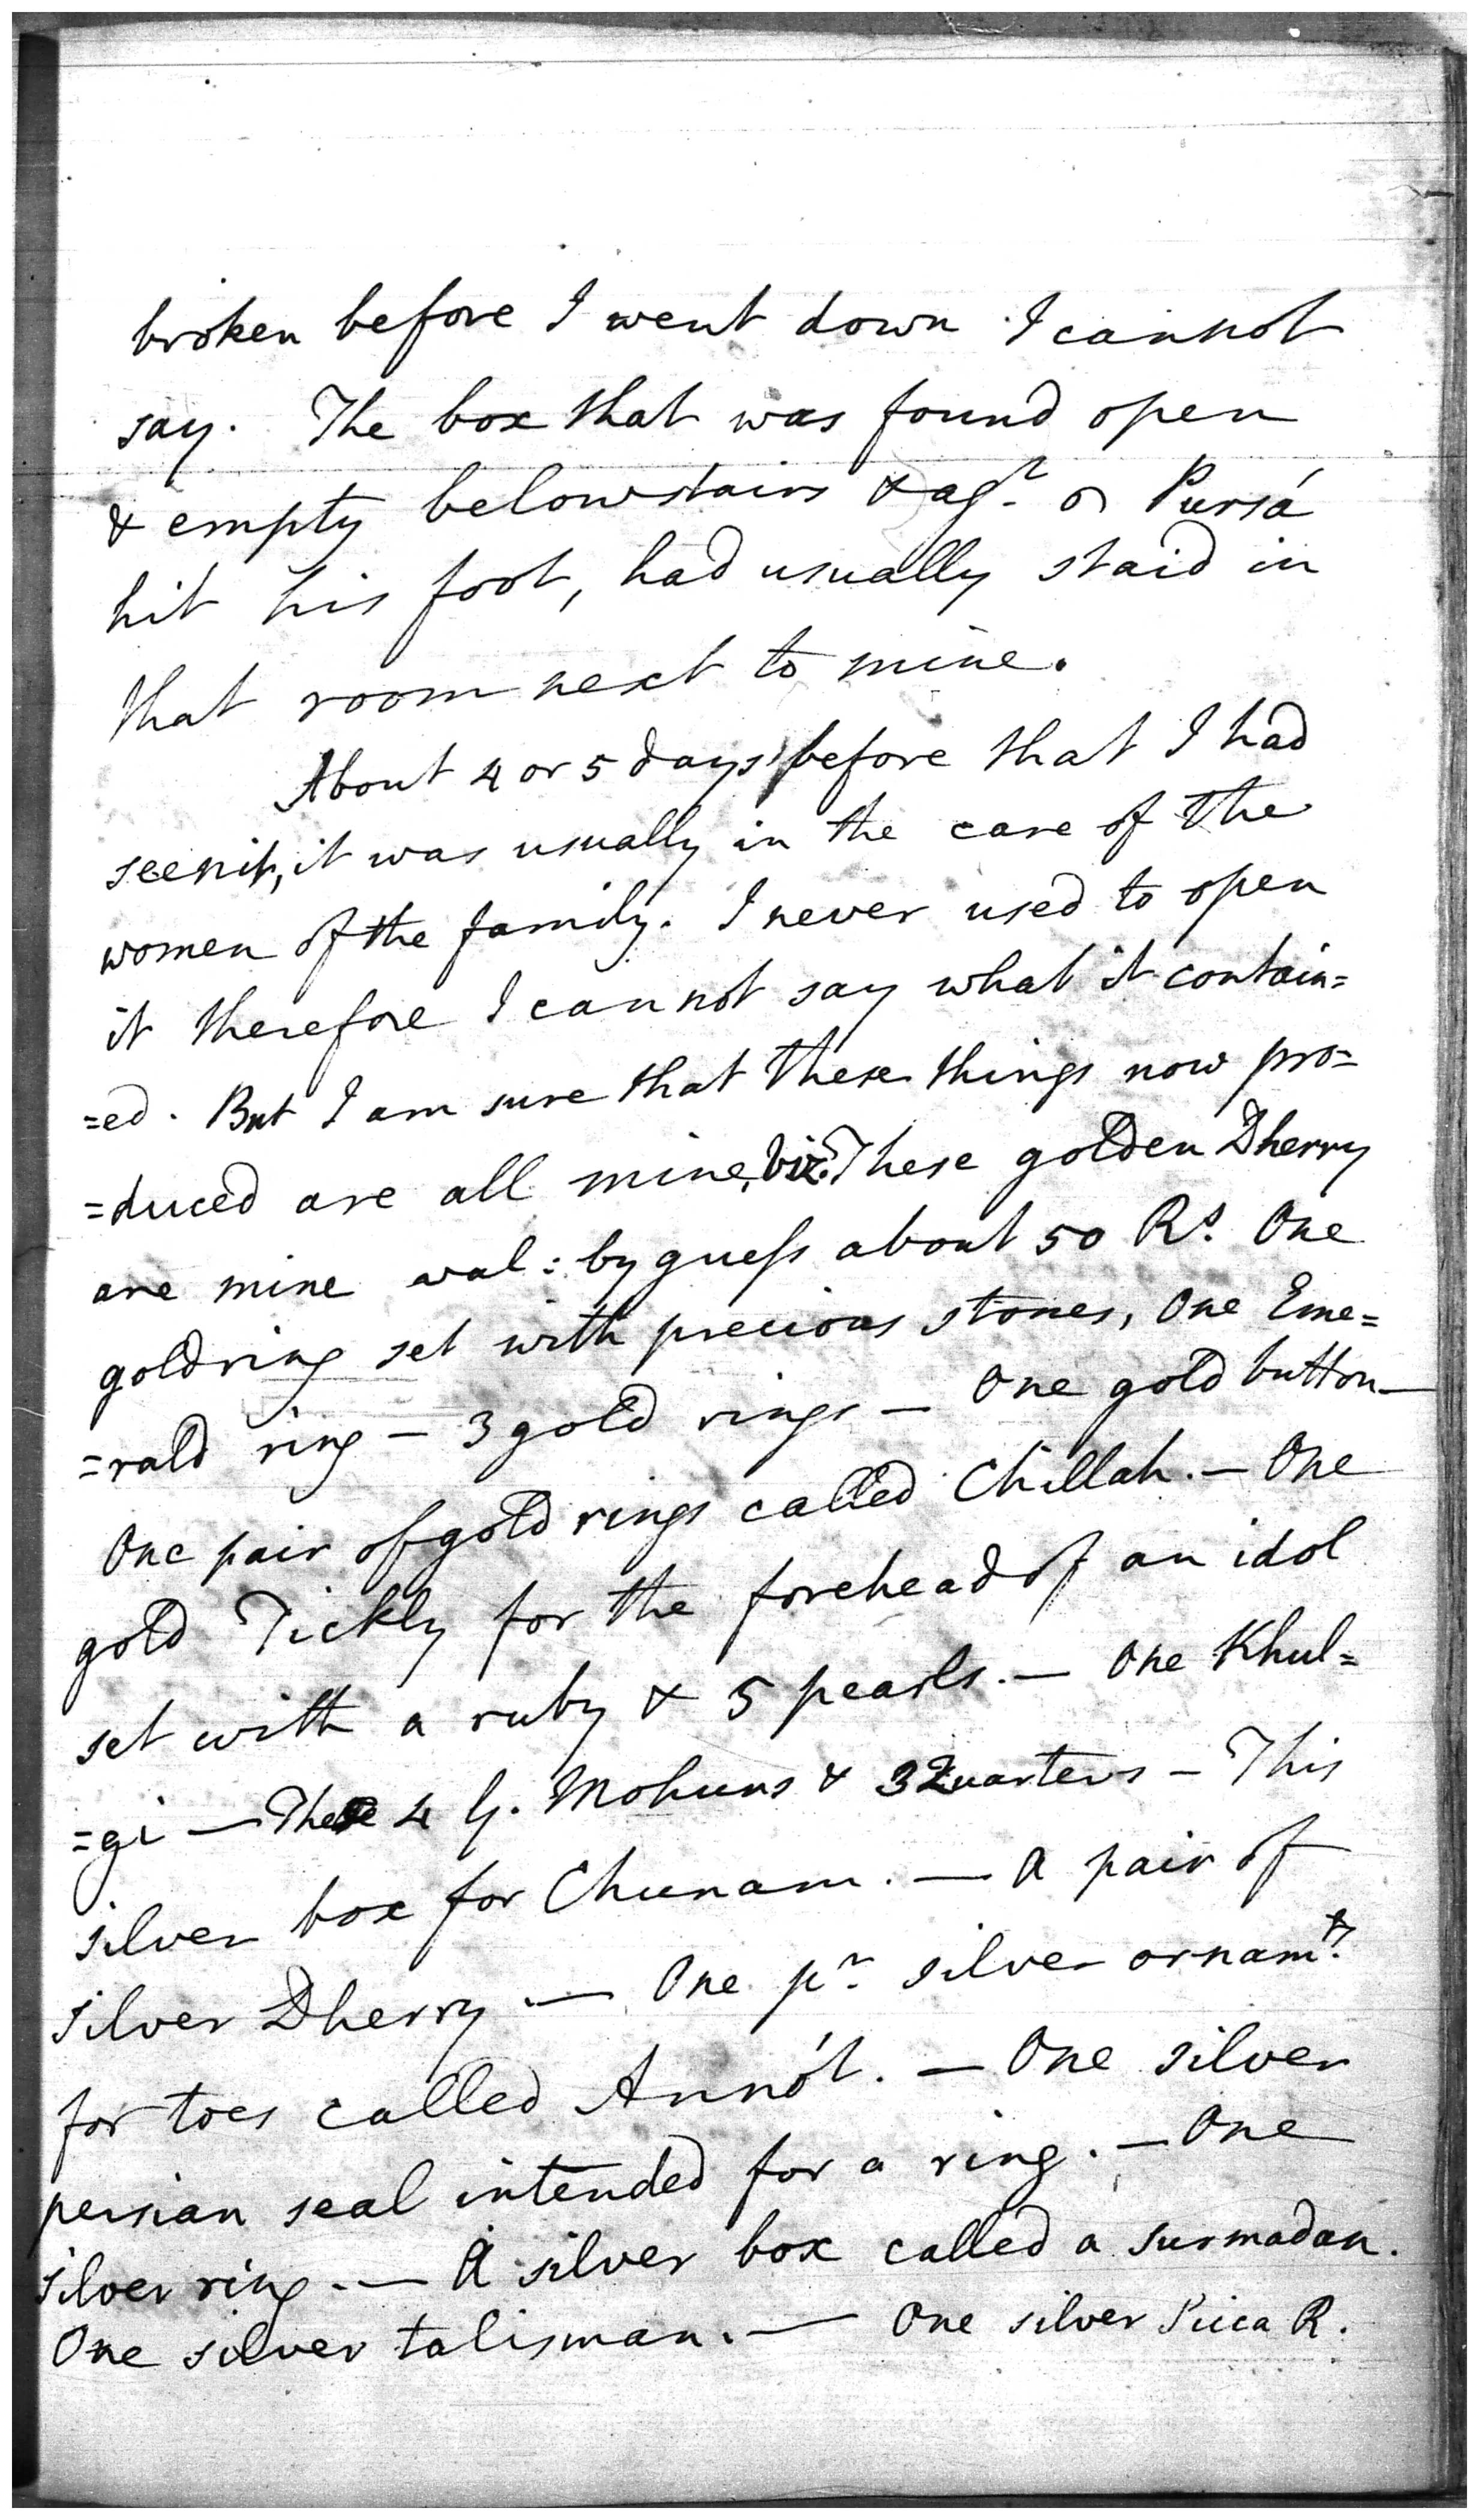 broken before I went down I cannot
say. The box that was found open
& empty belowstairs & ag.r Pursá
hit his foot, had usually staid in
that room next to mine.
About 4 or 5 days before that I had
seen it, it was usually in the care of the
women of the family. I never used to open
it therefore I cannot say what it contain=
=ed. But I am sure that these things now pro=
=duced are all mine, viz. These golden Dherry
are mine val: by guess about 50 Rs. One
gold ring set with precious stones, One Eme=
=rald ring — 3 gold rings — One gold button —
One pair of gold rings called Chillah. — One
gold Tickly for the forehead of an idol
set with a ruby & 5 pearls. — One Khul=
=gi — These 4 G. Mohurs & 3 Quarters — This
silver box for Chunam. — A pair of
silver Dherry. — One pr silver ornamts.
for toes called Annót. — One silver
persian seal intended for a ring. — One
silver ring. — A silver box called a surmadan.
One silver talisman. — One silver Sicca R.